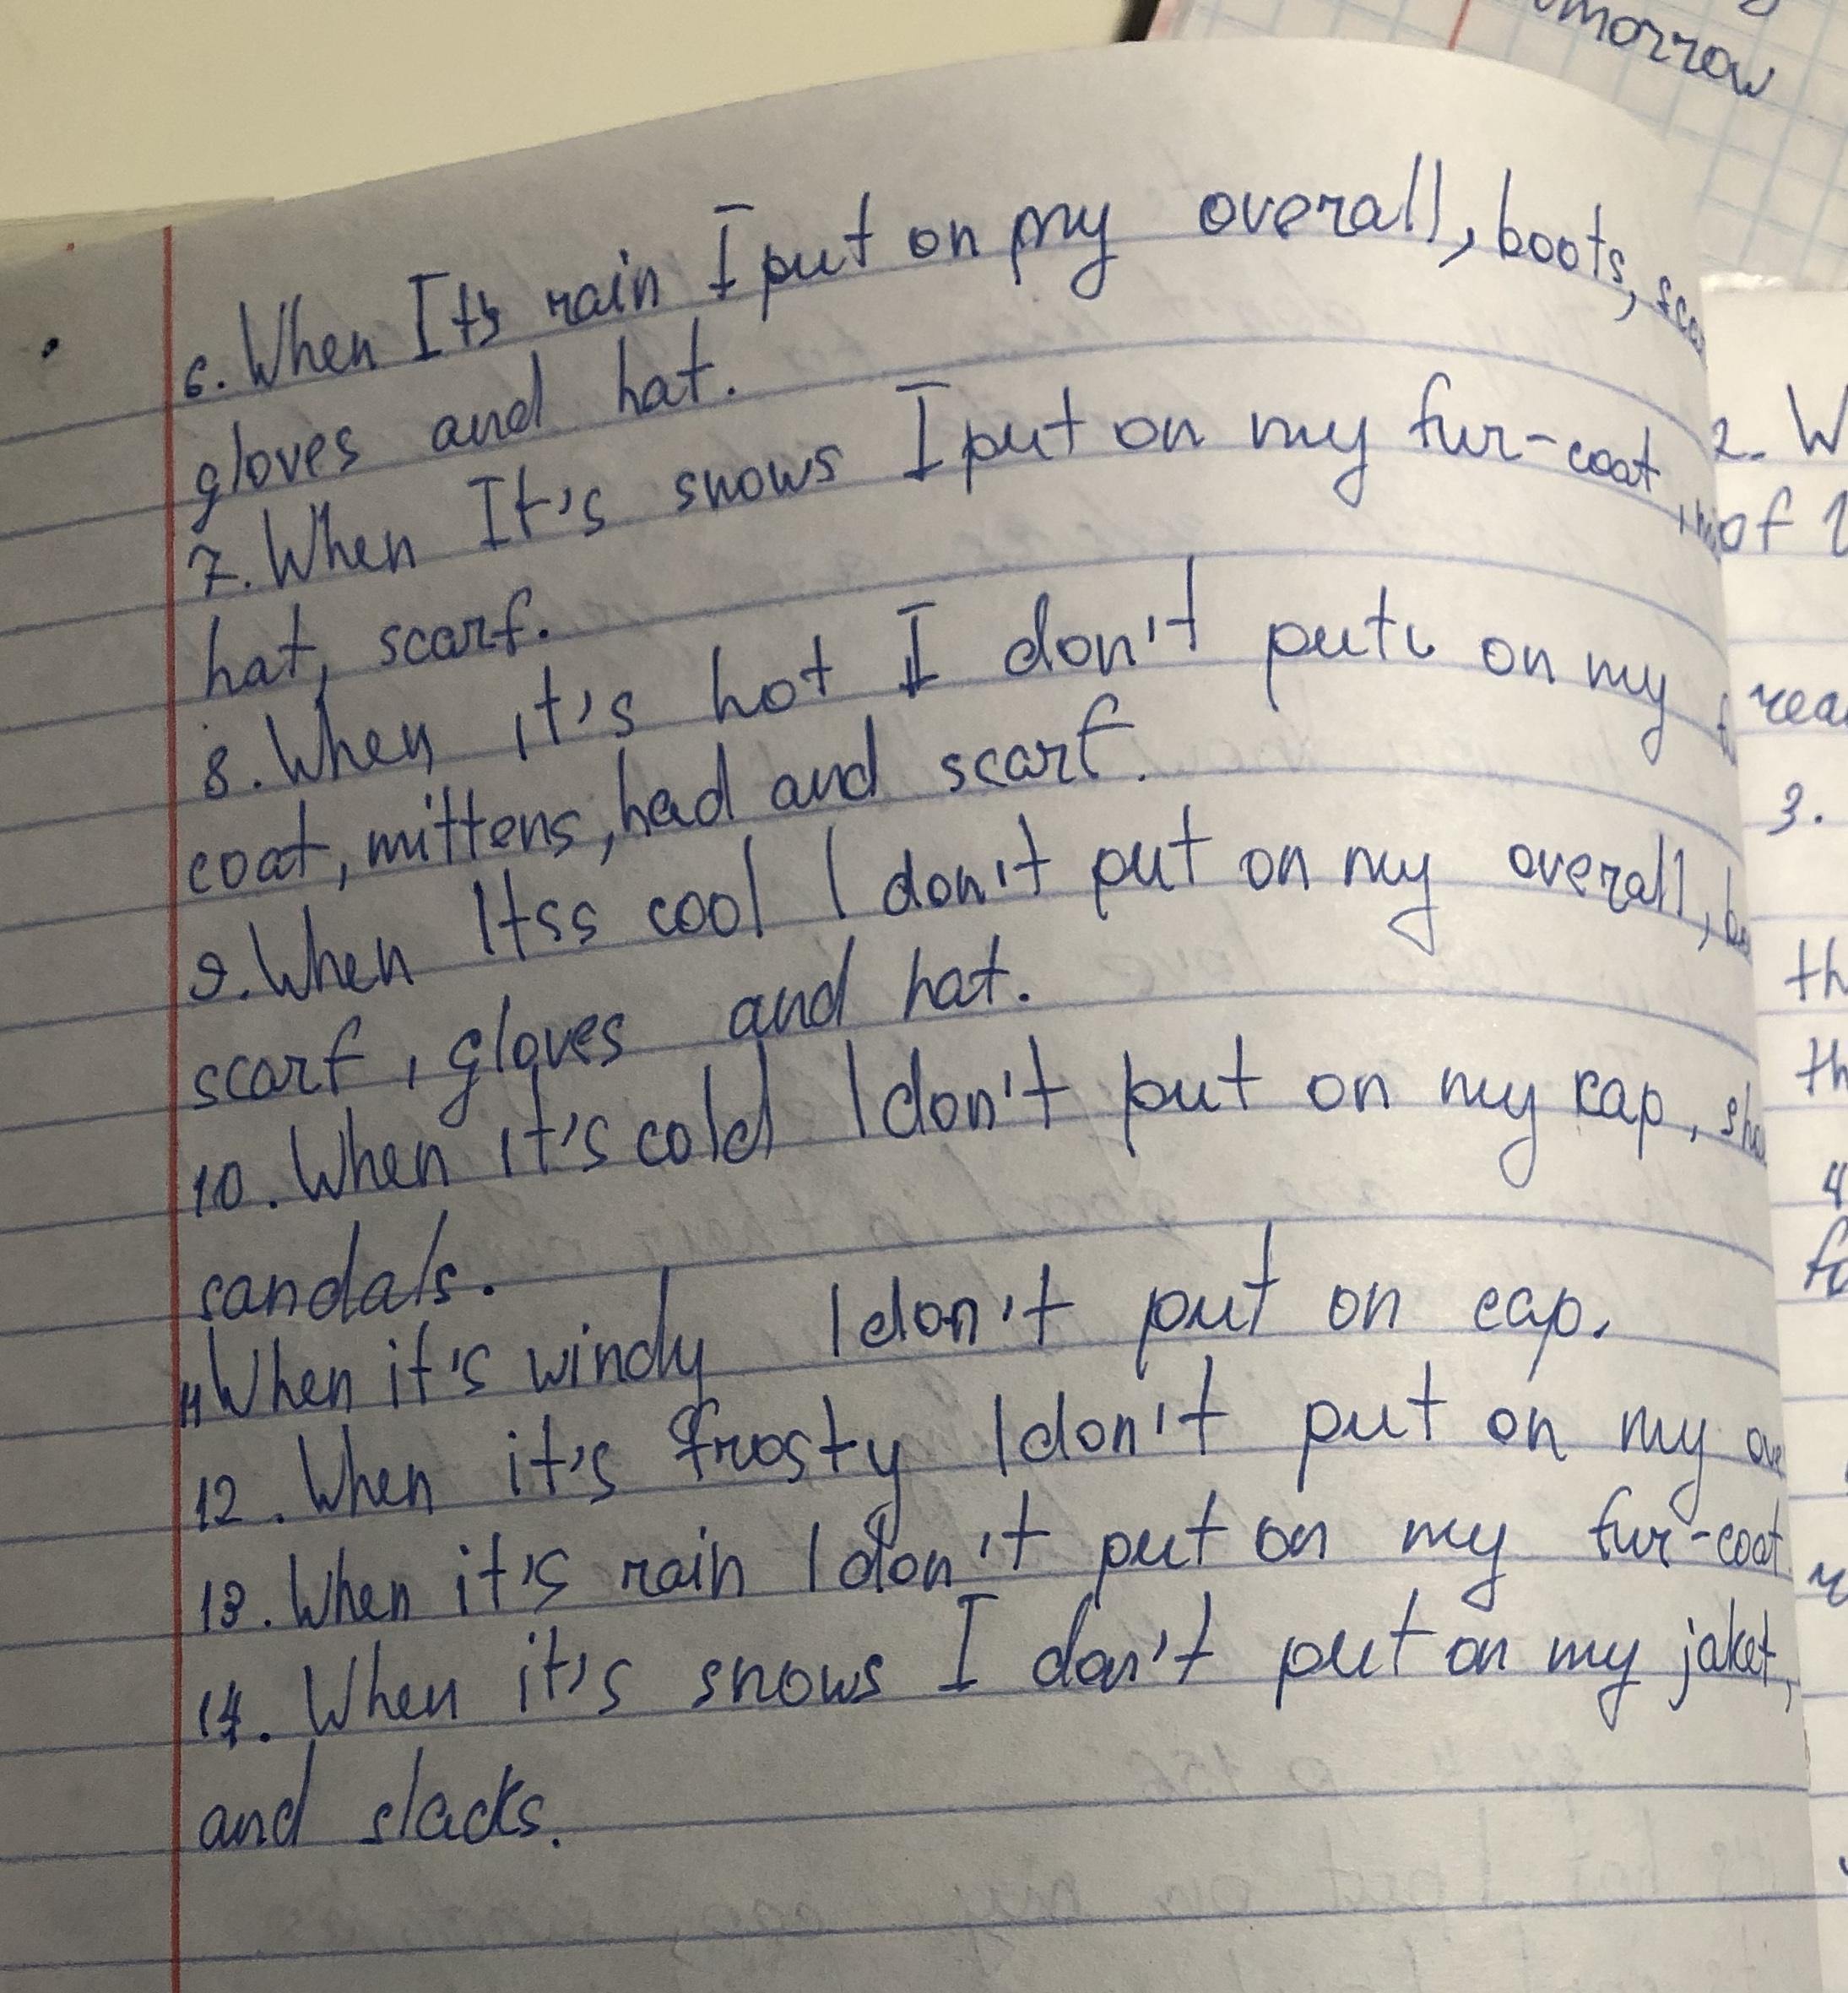 omorrow
6. When Its rain I put on my overall, boots,
gloves and hat.
7. When It's snows I put on my fur-coat,
hat, scarf.
8. When it's hot I don't put on my
coat, mittens, had and scarf.
9. When Itss cool I don't put on my overall,
scarf, gloves and hat.
10. When it's cold I don't put on my cap,
sandals.
11 When it's windy I don't put on cap.
12. When it's frosty I don't put on my
13. When it's rain I don't put on my fur-coat
14. When it's snows I don't put on my jaket,
and slacks.
2. W
of
3.
th
th
4